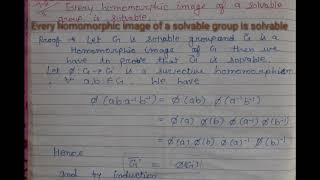 Every homomorphic image of a solvable
group is solvable.
Every homomorphic image of a solvable group is solvable
Proof → Let G is solvable group and G is a
Homomorphic image of G then we
have to prove that G is solvable.
Let ϕ: G → G' is a surjective homomorphism
∀ a, b ∈ G. We have
ϕ(a b a⁻¹ b⁻¹) = ϕ(ab) ϕ(a⁻¹ b⁻¹)
= ϕ(a) ϕ(b) ϕ(a⁻¹) ϕ(b⁻¹)
= ϕ(a) ϕ(b) ϕ(a)⁻¹ ϕ(b)⁻¹
Hence
G' = ϕ(G)
and by induction